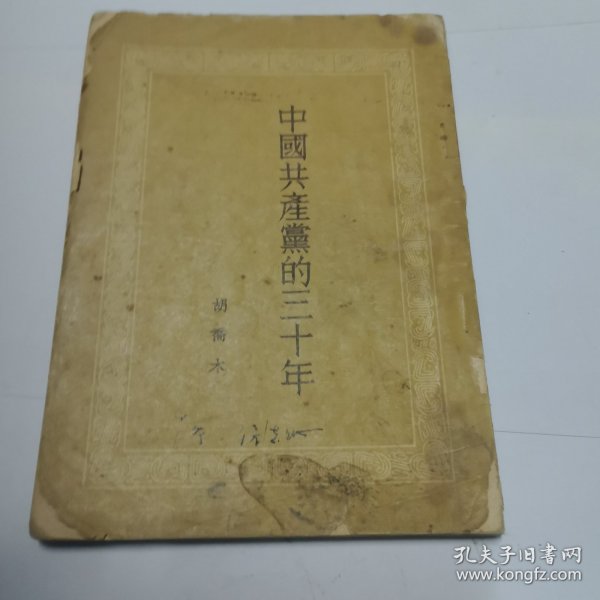 中國共產黨的三十年
胡喬木
孔夫子旧書网
www.kongfz.com